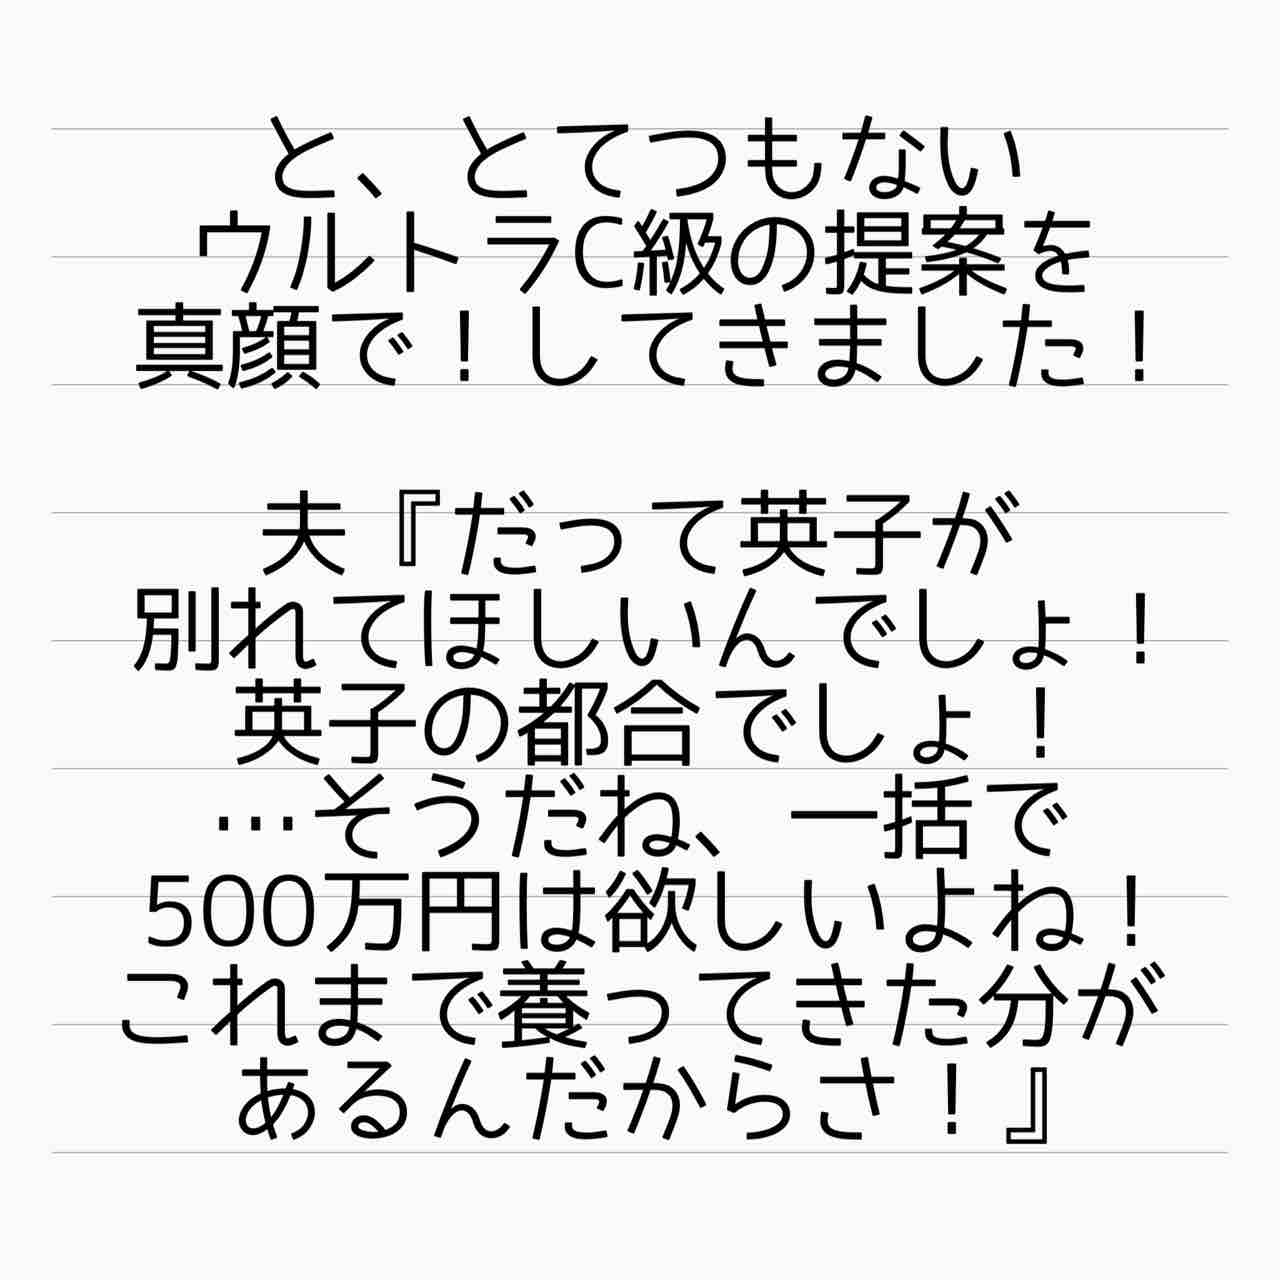 と、とてつもない
ウルトラC級の提案を
真顔で！してきました！
夫『だって英子が
別れてほしいんでしょ！
英子の都合でしょ！
…そうだね、一括で
500万円は欲しいよね！
これまで養ってきた分が
あるんだからさ！』